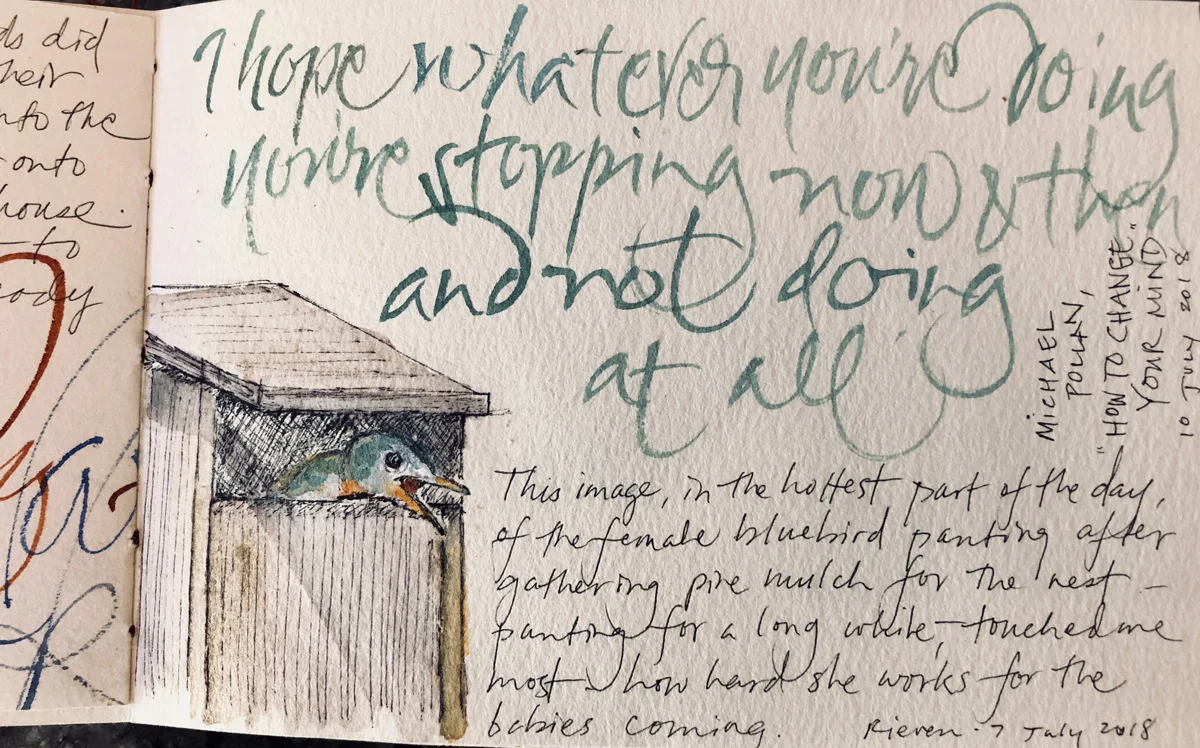 ds did
heir
nto the
onto
house.
to
ady
I hope whatever you're doing
you're stopping now & then
and not doing
at all
MICHAEL
POLLAN,
"HOW TO CHANGE
YOUR MIND"
10 JULY 2018
This image, in the hottest part of the day,
of the female bluebird panting after
gathering pine mulch for the nest –
panting for a long while, – touched me
most – how hard she works for the
babies coming.
7 July 2018